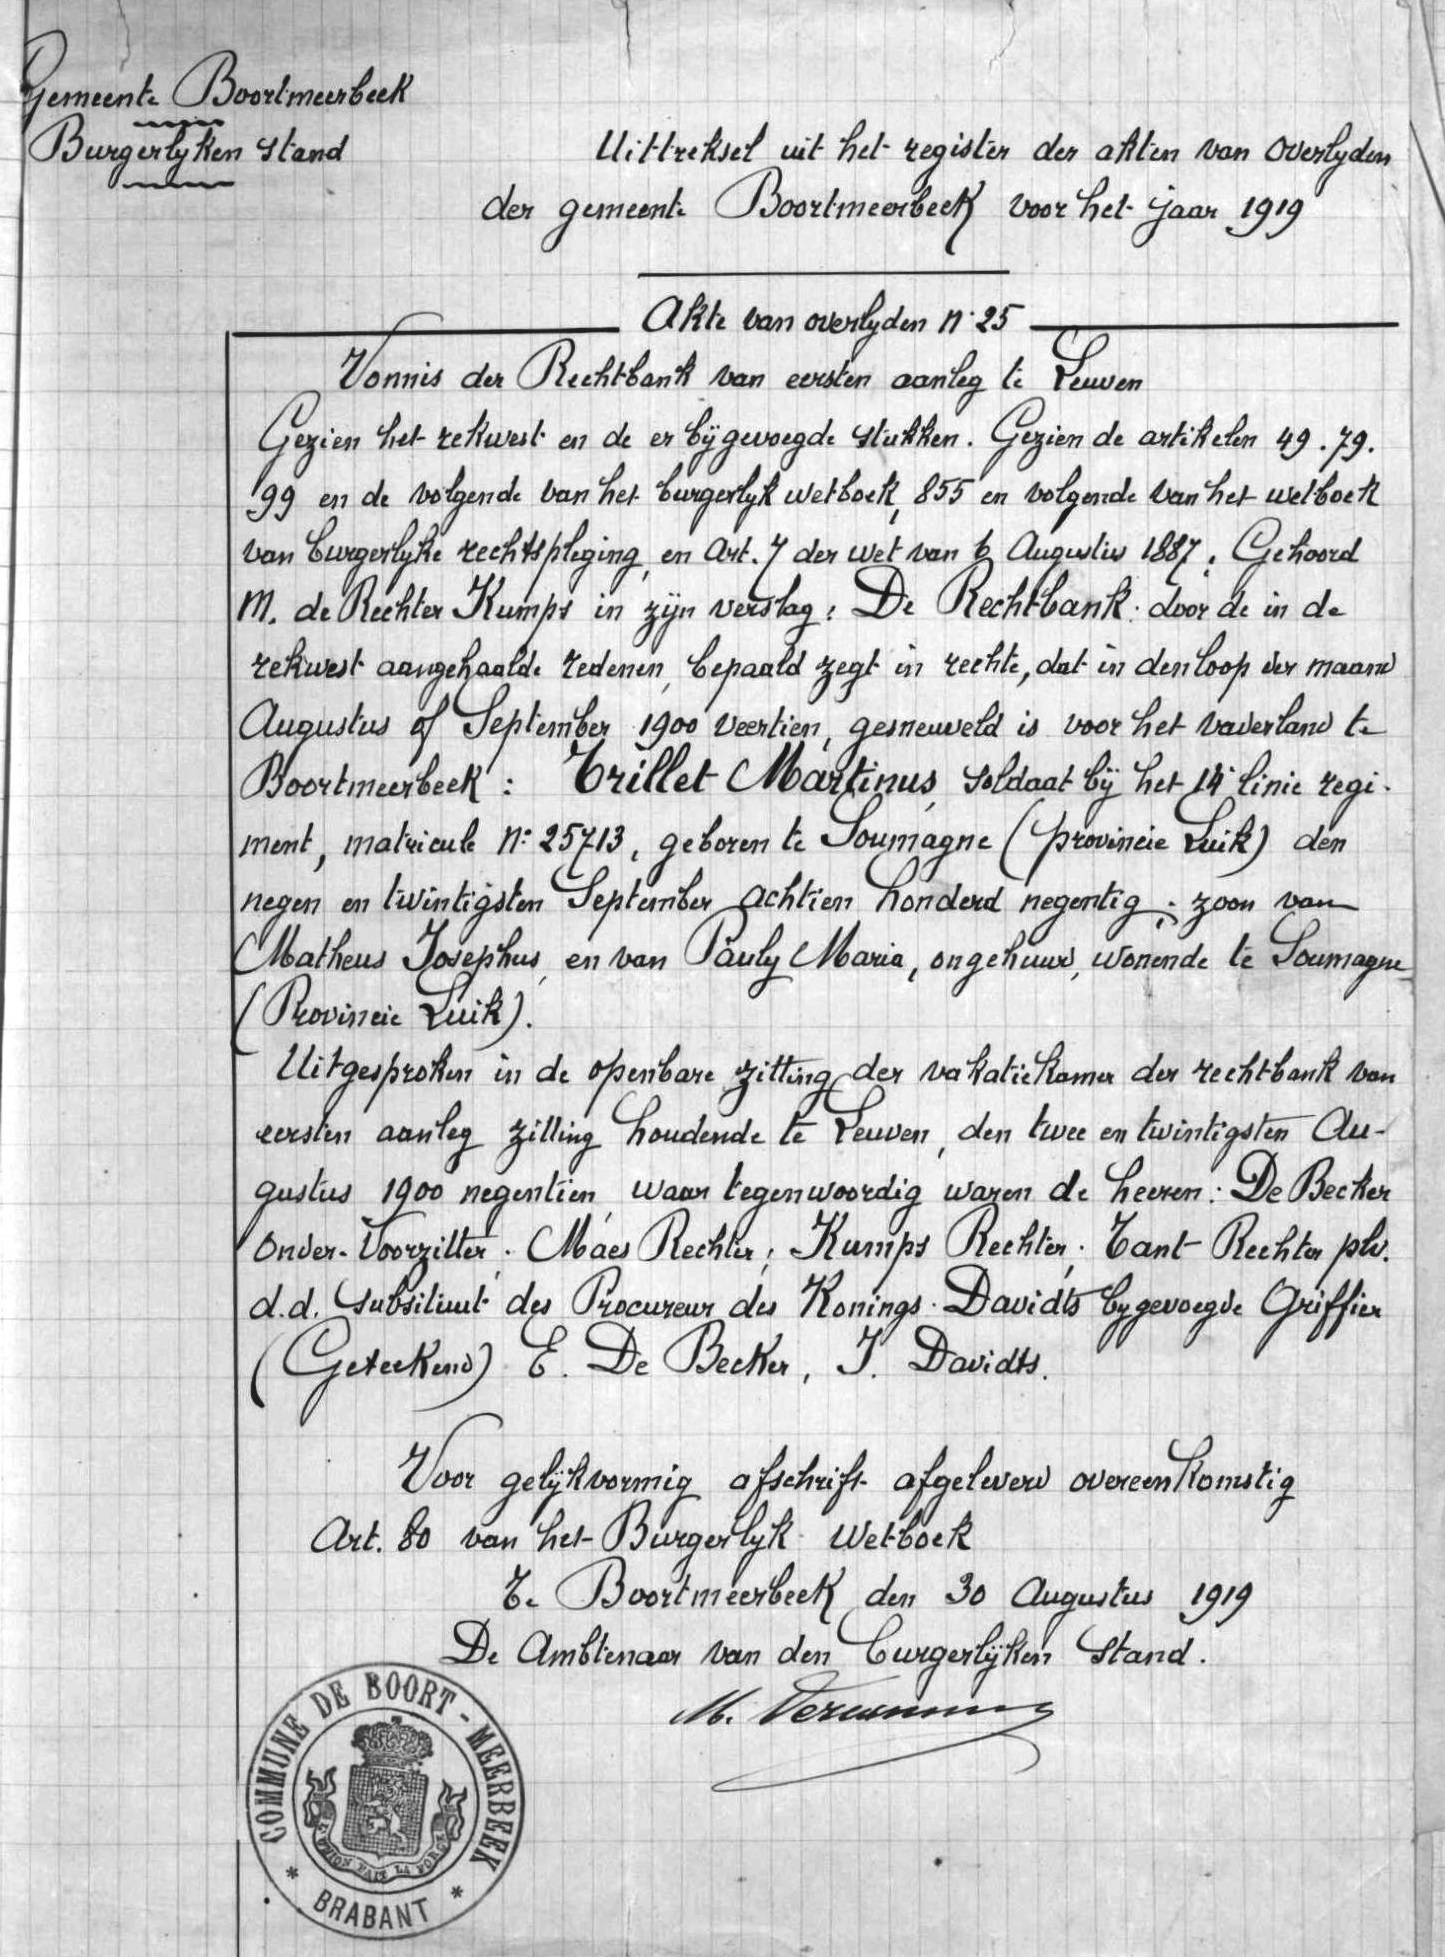 Gemeente Boortmeerbeek
Burgerlyken stand
Uittreksel uit het register der akten van overlyden
der gemeente Boortmeerbeek voor het jaar 1919
Akte van overlyden n° 25
Vonnis der Rechtbank van eersten aanleg te Leuven
Gezien het rekwest en de er bijgevoegde stukken. Gezien de artikelen 49. 79.
99 en de volgende van het burgerlyk wetboek, 855 en volgende van het wetboek
van burgerlyke rechtspleging, en Art. 7 der wet van Augustus 1887; Gehoord
M. de Rechter Kumps in zijn verslag: De Rechtbank door de in de
rekwest aangehaalde redenen, bepaald zegt in rechte, dat in den loop der maand
Augustus of September 1900 veertien, gesneuveld is voor het vaderland te
Boortmeerbeek: Trillet Martinus, soldaat bij het 14e linie regi-
ment, matricule n° 25713, geboren te Soumagne (provincie Luik) den
negen en twintigsten September achtien honderd negentig; zoon van
Matheus Josephus, en van Pauly Maria, ongehuwd, wonende te Soumagne
(Provincie Luik).
Uitgesproken in de openbare zitting der vakatiekamer der rechtbank van
eersten aanleg zitting houdende te Leuven, den twee en twintigsten Au-
gustus 1900 negentien waar tegenwoordig waren de heeren: De Becker
Onder-Voorzitter; Maes Rechter; Kumps Rechter; Tant Rechter plv.
d.d. Substituut des Procureur des Konings. Davidts bygevoegde Griffier
(Geteekend) E. De Becker, J. Davidts.
Voor gelijkvormig afschrift afgeleverd overeenkomstig
Art. 80 van het Burgerlyk Wetboek
Te Boortmeerbeek den 30 Augustus 1919
De Ambtenaar van den burgerlijken stand.
M.
COMMUNE DE BOORT-MEERBEEK
L'UNION FAIT LA FORCE
* BRABANT *